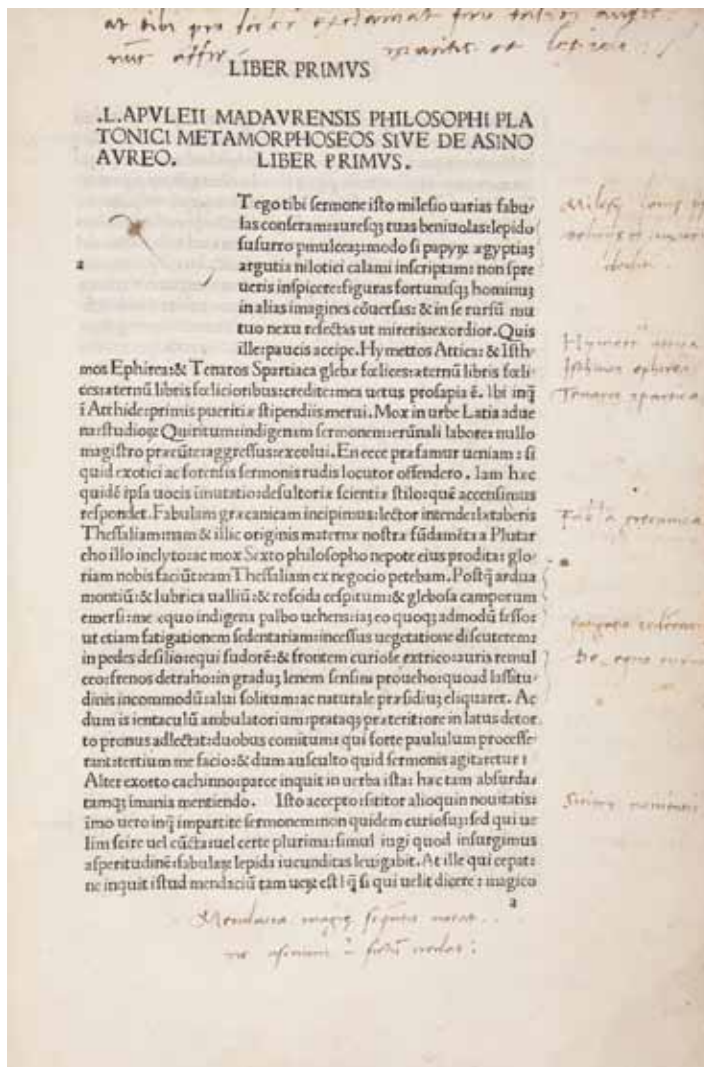 LIBER PRIMVS
.L.APVLEII MADAVRENSIS PHILOSOPHI PLA
TONICI METAMORPHOSEOS SIVE DE ASINO
AVREO. LIBER PRIMVS.
T ego tibi sermone isto milesio uarias fabu/
las conseram:auresqꝫ tuas beniuolas:lepido
susurro pmulceaꝫ:modo si papyꝝ ægyptiaꝫ
argutia nilotici calami inscriptam: non spre
ueris inspicere:figuras fortunasqꝫ hominuꝫ
in alias imagines cōuersas: & in se rursū mu
tuo nexu refectas ut mireris:exordior. Quis
ille:paucis accipe. Hymettos Attica: & Isth-
mos Ephirea:& Tenaros Spartiaca glebæ fœlices:æternū libris fœli-
ces:æternū libris fœlicioribus:credite:mea uetus prosapia ē. Ibi inq̄
ī Atthide:primis pueritiæ stipendiis merui. Mox in urbe Latia adue
na:studioꝝ Quiritum:indigenam sermonem:erūnali labore: nullo
magistro præeūte:aggressus:excolui. En ecce præfamur ueniam : si
quid exotici ac forensis sermonis rudis locutor offendero . Iam hæc
quidē ipsa uocis īmutatio:desultoriæ scientiæ stilo:quē accersimus
respondet. Fabulam græcanicam incipimus:lector intende:lætaberis
Thessaliam:nam & illic originis maternæ nostræ fūdamēta a Plutar
cho illo inclyto:ac mox Sexto philosopho nepote eius prodita: glo-
riam nobis faciūt:eam Thessaliam ex negocio petebam. Postq̄ ardua
montiū:& lubrica ualliū:& roscida cespitum:& glebosa camporum
emersi:me equo indigena palbo uehens:iaꝫ eo quoqꝫ admodū fesso:
ut etiam fatigationem sedentariam:incessus uegetatione discuterem:
in pedes desilio:equi sudorē:& frontem curiose extrico:auris remul
ceo:frenos detraho:in graduꝫ lenem sensim proueho:quoad lassitu-
dinis incommodū:alui solitum:ac naturale præsidiuꝫ eliquaret. Ac
dum is ientaculū ambulatorium:prataqꝫ præterit:ore in latus detor
to pronus adfectat:duobus comitum: qui forte paululum processe-
rant:tertium me facio:& dum ausculto quid sermonis agitaretur :
Alter exorto cachinno:parce inquit in uerba ista: hæc tam absurda:
tamqꝫ imania mentiendo. Isto accepto:sititor alioquin nouitatis:
īmo uero inq̄ impartite sermonem:non quidem curiosuꝫ:sed qui ue
lim scire uel cūcta:uel certe plurima: simul iugi quod insurgimus
asperitudinē:fabulaꝝ lepida iucunditas leuigabit. At ille qui cepat:
ne inquit istud mendaciū tam ueꝝ est ! q̄ si qui uelit dicere : magico
a